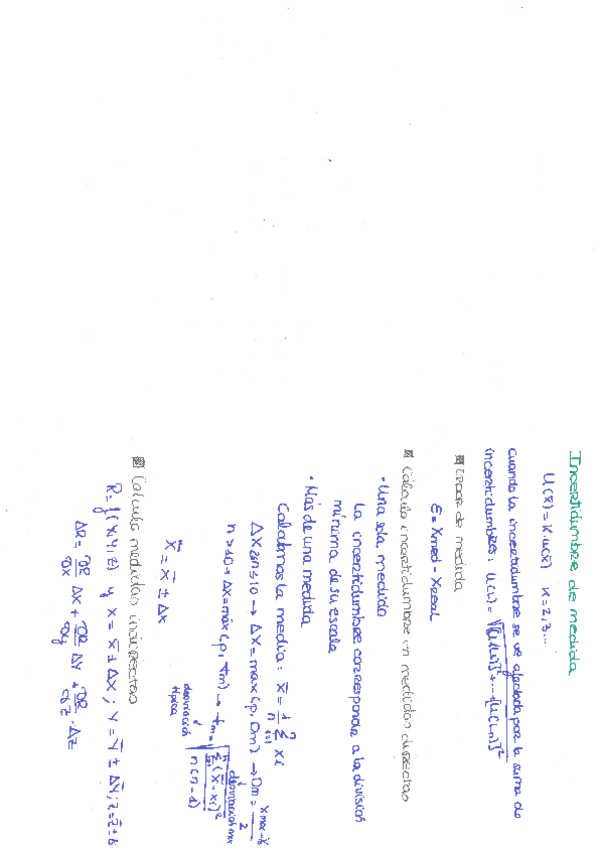 Incertidumbre de medida
U(x̄) = K·u(x̄) K = 2, 3...
Cuando la incertidumbre se ve afectada por la suma de
incertidumbres: u(L) = √[u(L₁)]² + ... + [u(Ln)]²
Error de medida
E = Xmed - Xreal
Cálculo incertidumbre en medidas directas
• Una sola medida
La incertidumbre corresponde a la división
mínima de su escala
• Más de una medida
Calculamos la media: x̄ = 1/n Σ xi
ΔX → Dm = Xmax - X / 2
n > 10 → ΔX = máx (p, σm) → σm = √ Σ (x̄ - xi)² / n(n-1)
desviación
típica
X = x̄ ± Δx
Cálculo medidas indirectas
R = f(x, y, z) y x = x̄ ± Δx; y = ȳ ± Δy; z = z̄ ±
ΔR = ∂R/∂x Δx + ∂R/∂y Δy + ∂R/∂z · Δz